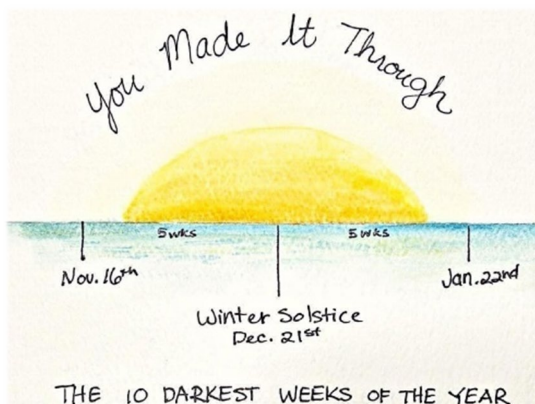 You Made It Through
5 wks 5 wks
Nov. 16th Jan. 22nd
Winter Solstice
Dec. 21st
THE 10 DARKEST WEEKS OF THE YEAR